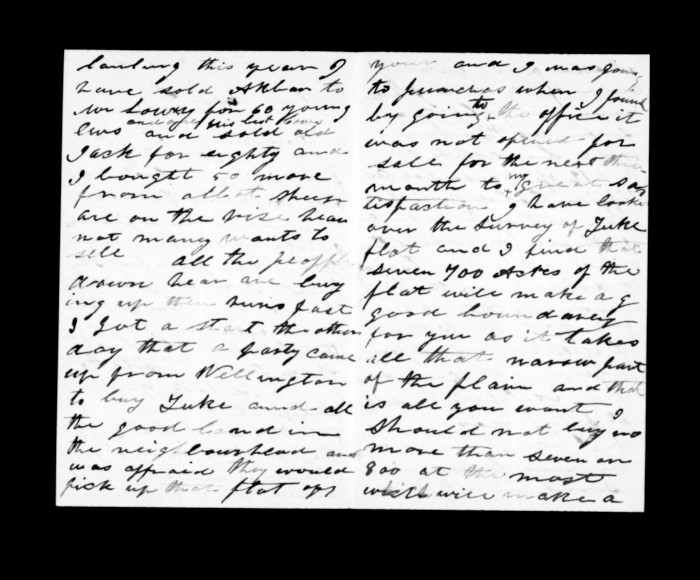 this year I
have sold Akbar to
Mr Lowry for 60 young
and one of his best rams
ews and sold old
Jack for eighty and
I bought 50 more
from allot sheep
are on the rise hear
not maney wants to
sell all the peopple
down hear are buy
ing up their runs fast
I got a start the other
day that a party came
up from Wellington
to buy Tuke and all
the good land in
the neighbourhead and
was affraid they would
pick up that flat of
yours and I was going
to purches when I found
by going to the office it
was not opened for
sale for the next three
month to my great sa
tisfaction I have looked
over the survey of Tuke
flat and I find that
seven 700 Acres of the
flat will make a g
good boundarey
for you as it takes
all that narrow part
of the plain and that
is all you want I
should not buy no
more than seven or
800 at the most
will make a